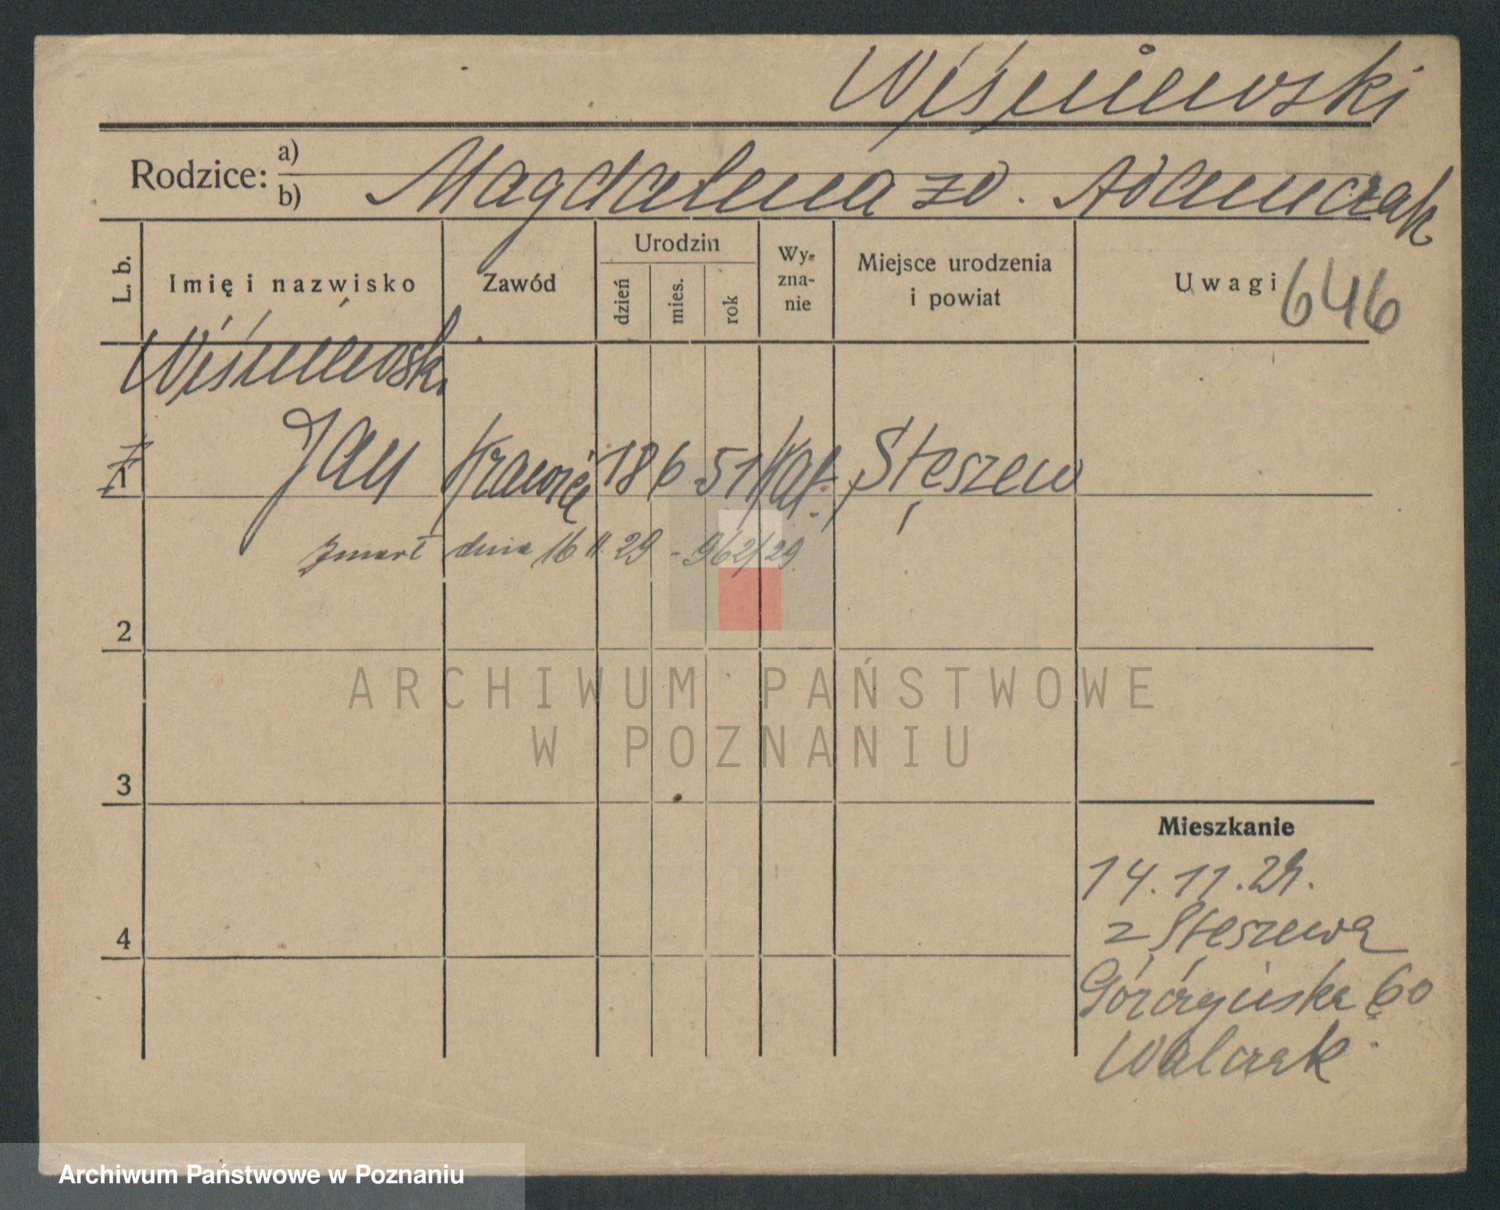 Wiśniewski
Rodzice: a)
b) Magdalena zd. Adamczak
L. b. Imię i nazwisko Zawód Urodzin dzień mies. rok Wy-zna-nie Miejsce urodzenia i powiat Uwagi 646
Wiśniewski
1 Jan Krawiec 18 6 51 Kat. Stęszew
zmarł dnia 16 11. 29 - 962/29.
2
3
4
Mieszkanie
14.11.29.
z Stęszewa
60
Walczak
ARCHIWUM PAŃSTWOWE
W POZNANIU
Archiwum Państwowe w Poznaniu